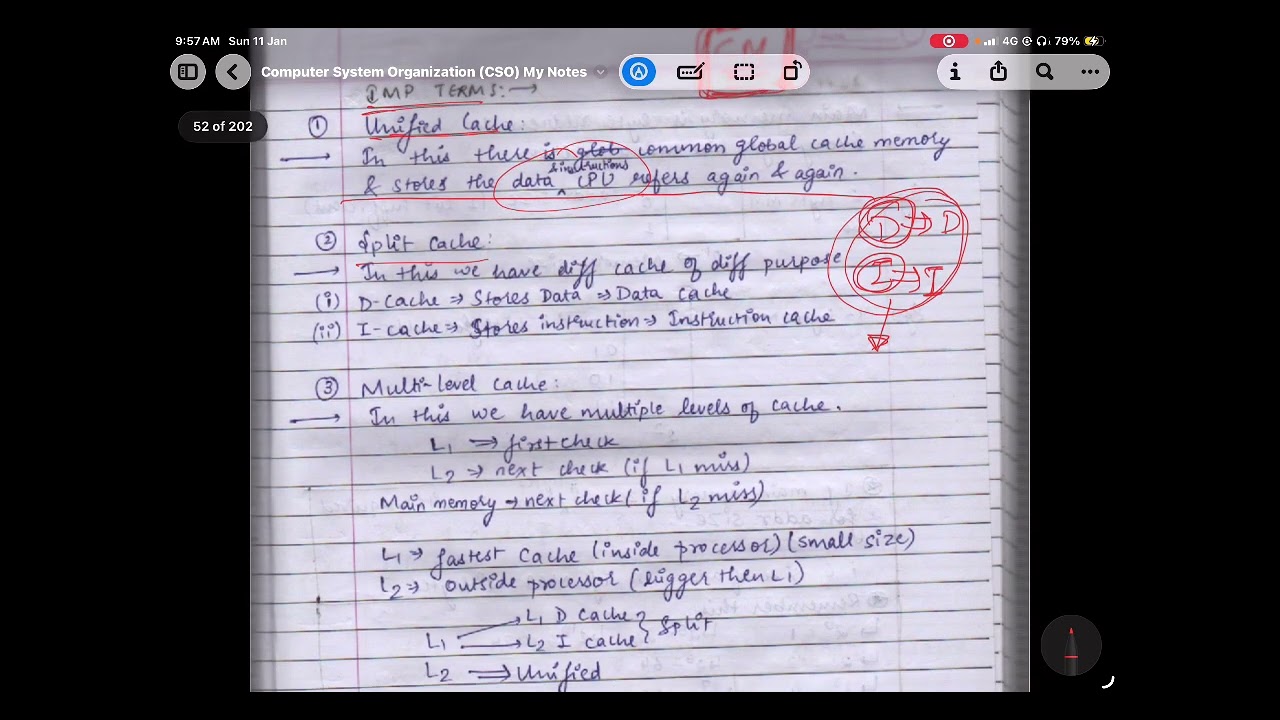 9:57 AM Sun 11 Jan
4G 79%
Computer System Organization (CSO) My Notes
CN
52 of 202
IMP TERMS:→
① Unified Cache:
→ In this there is glob common global cache memory
& instructions
& stores the data ^ CPU refers again & again.
D → D
② Split cache:
I → I
→ In this we have diff cache of diff purpose
(i) D-Cache ⇒ Stores Data ⇒ Data Cache
(ii) I-cache ⇒ Stores instruction ⇒ Instruction cache
③ Multi-level cache:
→ In this we have multiple levels of cache.
L1 ⇒ first check
L2 → next check (if L1 miss)
Main memory → next check (if L2 miss)
L1 → fastest cache (inside processor) (small size)
L2 → outside processor (bigger then L1)
→ L1 D cache
L1 → L2 I cache } split
L2 ⇒ Unified